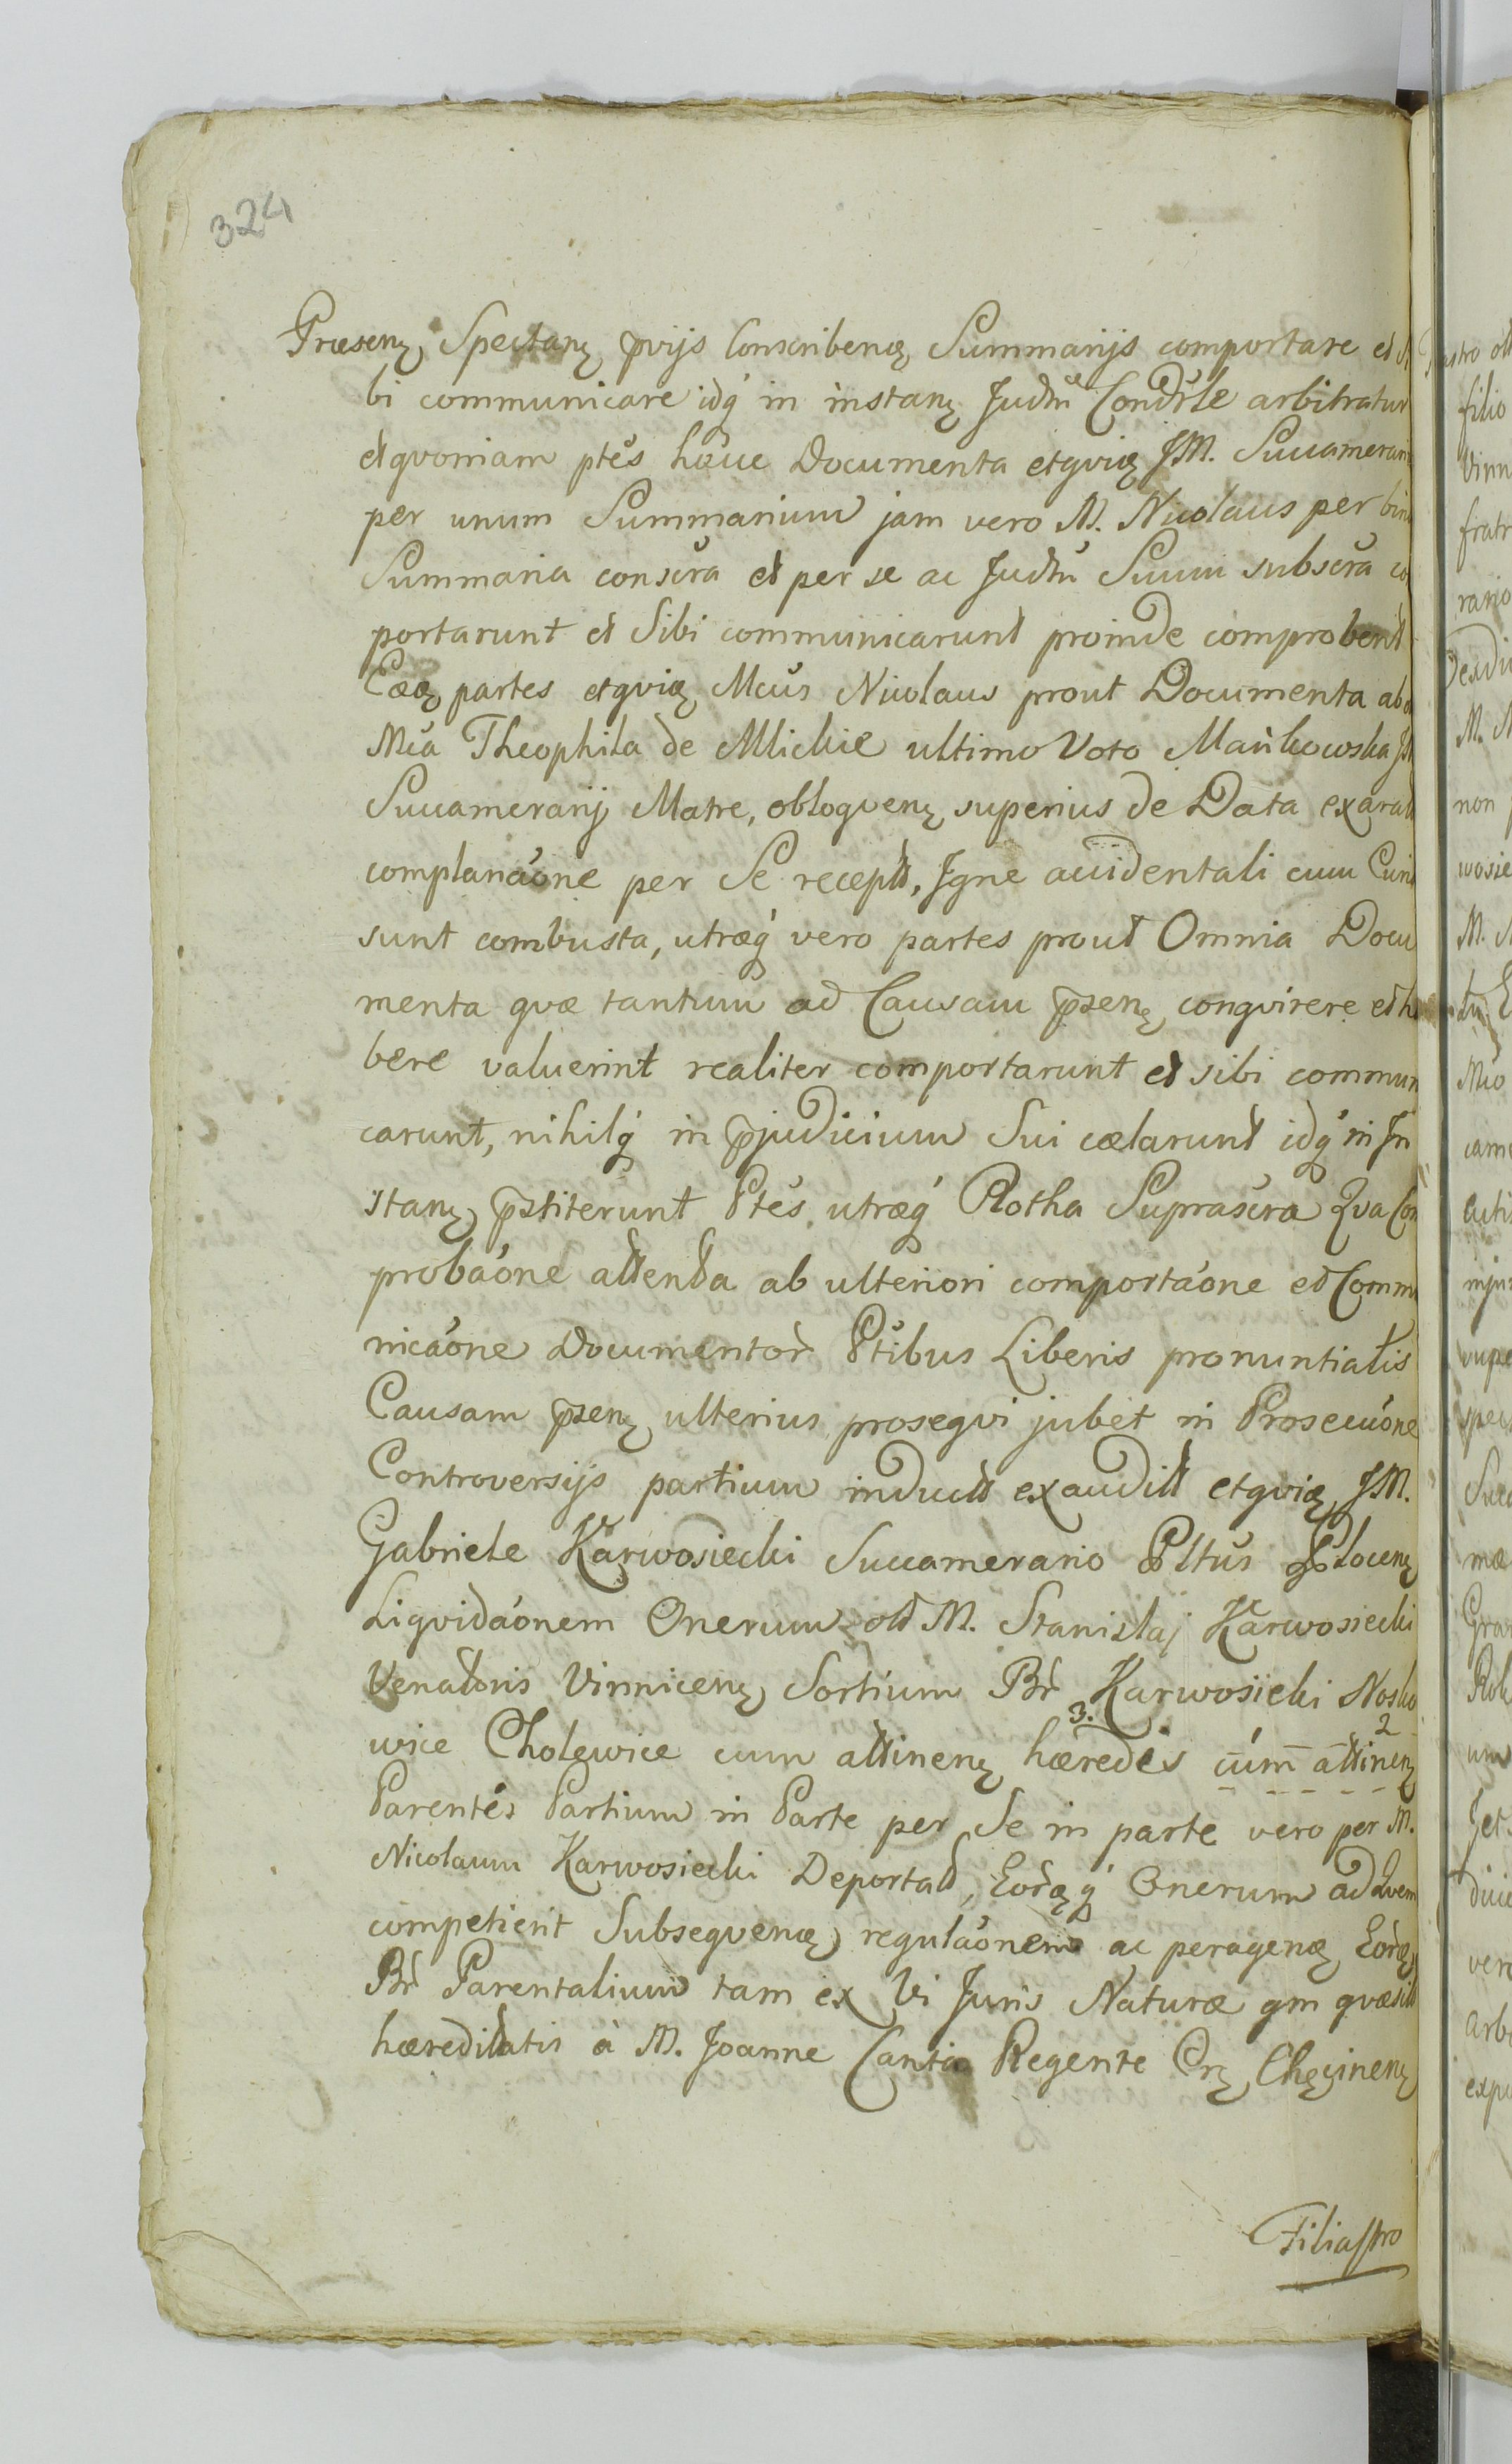 324
Præsenꝫ Spectanꝫ p̄vijs Conscribenꝫ Summarijs comportare et si
bi communicare idq́ in instanꝫ Judtū Condrle arbitratur
etqvoniam ptes hæue Documenta etqviꝫ JM. Succamerari
per unum Summarium jam vero M. Nicolaus per bin
Summaria conscra et per se ac Judtū Suum subscra co
portarunt et Sibi communicarunt proinde comprobent
Cæꝫ partes etqviꝫ Mcus Nicolaus prout Documenta ab
Mca Theophila de Mlickie ultimo Voto Mańkowska JM
Succamerarij Matre, obloqvenꝫ superius de Data exarat
complanaone per Se recept, Jgne accidentali cum Curia
sunt combusta, utræq́ vero partes prout Omnia Docu
menta qvæ tantum ad Causam p̄senꝫ conqvirere et ha
bere valuerint realiter comportarunt et sibi communi
carunt, nihilq́ in p̄judicium Sui cælarunt idq́ in Jn
stanꝫ p̄stiterunt Ptes utræq́ Rotha Suprascra Qva Com
probaone attenta ab ulteriori comportaone et Commu
nicaone Documentor Ptibus Liberis pronuntiatis
Causam p̄senꝫ ulterius proseqvi jubet in Prosecuone
Controversijs partium induct exaudit etqviꝫ JM.
Gabriele Karwosiecki Succamerario Pltus Plocenꝫ
Liqvidaonem Onerum olt M. Stanislaj Karwosiecki
Venatoris Vinnicenꝫ Sortium Br Karwosiecki Nosko
wice Cholewice cum attinenꝫ 3. hæredes cum attinenꝫ 2
Parentes Partium in Parte per Se in parte vero per M.
Nicolaum Karwosiecki Deportat, Eorꝫq́ Onerum ad Qvem
competierit Subseqvenꝫ regulaonem ac peragenꝫ Eorꝫ
Br Parentalium tam ex Vi Juris Naturæ qm qvæsit
hæreditatis à M. Joanne Cantio Regente Crꝫ Chęcinenꝫ
Filiastro